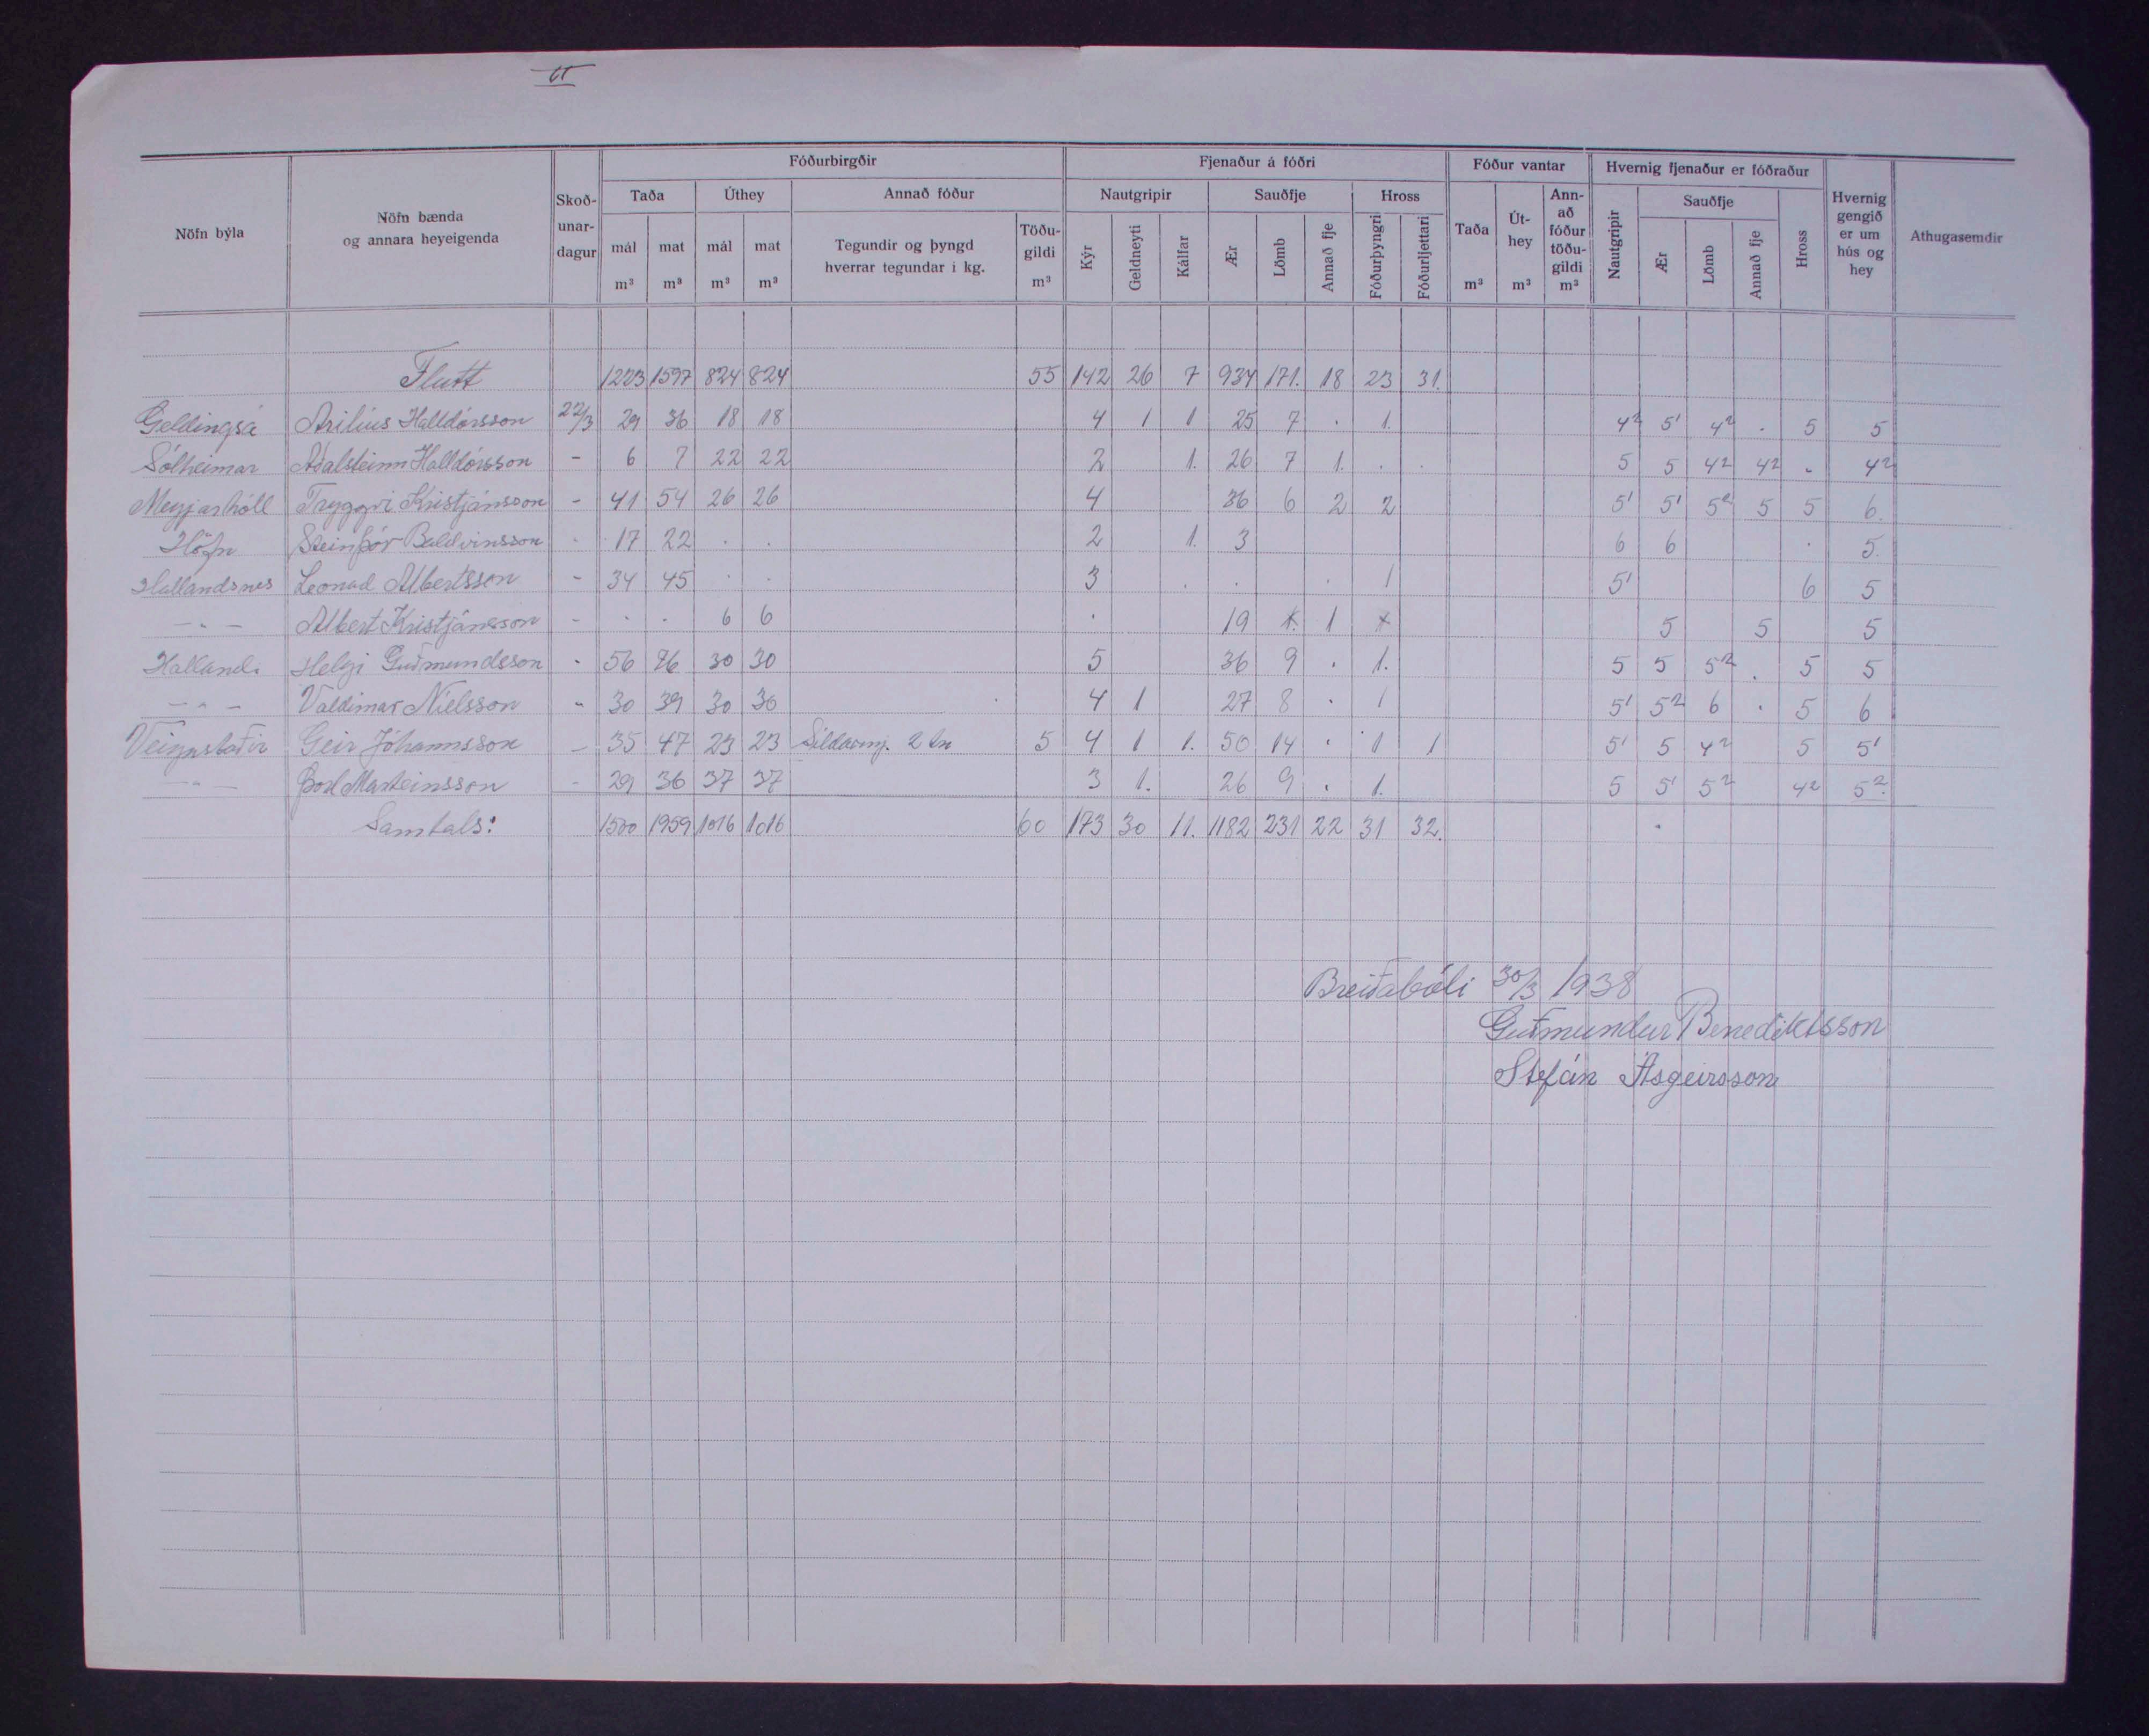 VI
Nöfn býla
Nöfn bænda og annara heyeigenda
Skoð-unar-dagur
Fóðurbirgðir
Taða
mál m³
mat m³
Úthey
mál m³
mat m³
Annað fóður
Tegundir og þyngd hverrar tegundar í kg.
Töðu-gildi m³
Fjenaður á fóðri
Nautgripir
Kýr
Geldneyti
Kálfar
Sauðfje
Ær
Lömb
Annað fje
Hross
Fóðurþyngri
Fóðurljettari
Fóður vantar
Taða m³
Út-hey m³
Ann-að fóður töðu-gildi m³
Hvernig fjenaður er fóðraður
Nautgripir
Sauðfje
Ær
Lömb
Annað fje
Hross
Hvernig gengið er um hús og hey
Athugasemdir
Flutt 1223 1597 824 824 55 142 26 7 934 171. 18 23 31.
Geldingsá Arilíus Halldórsson 22/3 29 36 18 18 4 1 1 25 7 . 1. 4² 5¹ 4² . 5 5
Sólheimar Aðalsteinn Halldórsson - 6 7 22 22 2 1. 26 7 1. . . 5 5 4² 4² . 4²
Meyjarhóll Tryggvi Kristjánsson - 41 54 26 26 4 36 6 2 2 5¹ 5¹ 5² 5 5 6.
Höfn Steinþór Baldvinsson . 17 22 . . 2 1. 3 6 6 . 5.
Hallandsnes Leonad Albertsson - 34 45 . . 3 . . . 1 5¹ 6 5
- " - Albert Kristjánsson - . . 6 6 . 19 1 5 5 5
Halland. Helgi Guðmundsson . 56 76 30 30 5 36 9 . 1. 5 5 5² . 5 5
- " - Valdimar Níelsson " 30 39 30 30 4 1 27 8 . 1 5¹ 5² 6 . 5 6
Veigastaðir Geir Jóhannsson - 35 47 23 23 Síldarmj. 2 tn 5 4 1 1. 50 14 . 1 1 5¹ 5 4² 5 5¹
- " - Þorl Marteinsson - 29 36 37 37 3 1. 26 9 . 1. 5 5¹ 5² 4² 5².
Samtals: 1500 1959 1016 1016 60 173 30 11. 1182 231 22 31 32.
Breiðabóli 30/3 1938
Guðmundur Benediktsson
Stefán Ásgeirsson